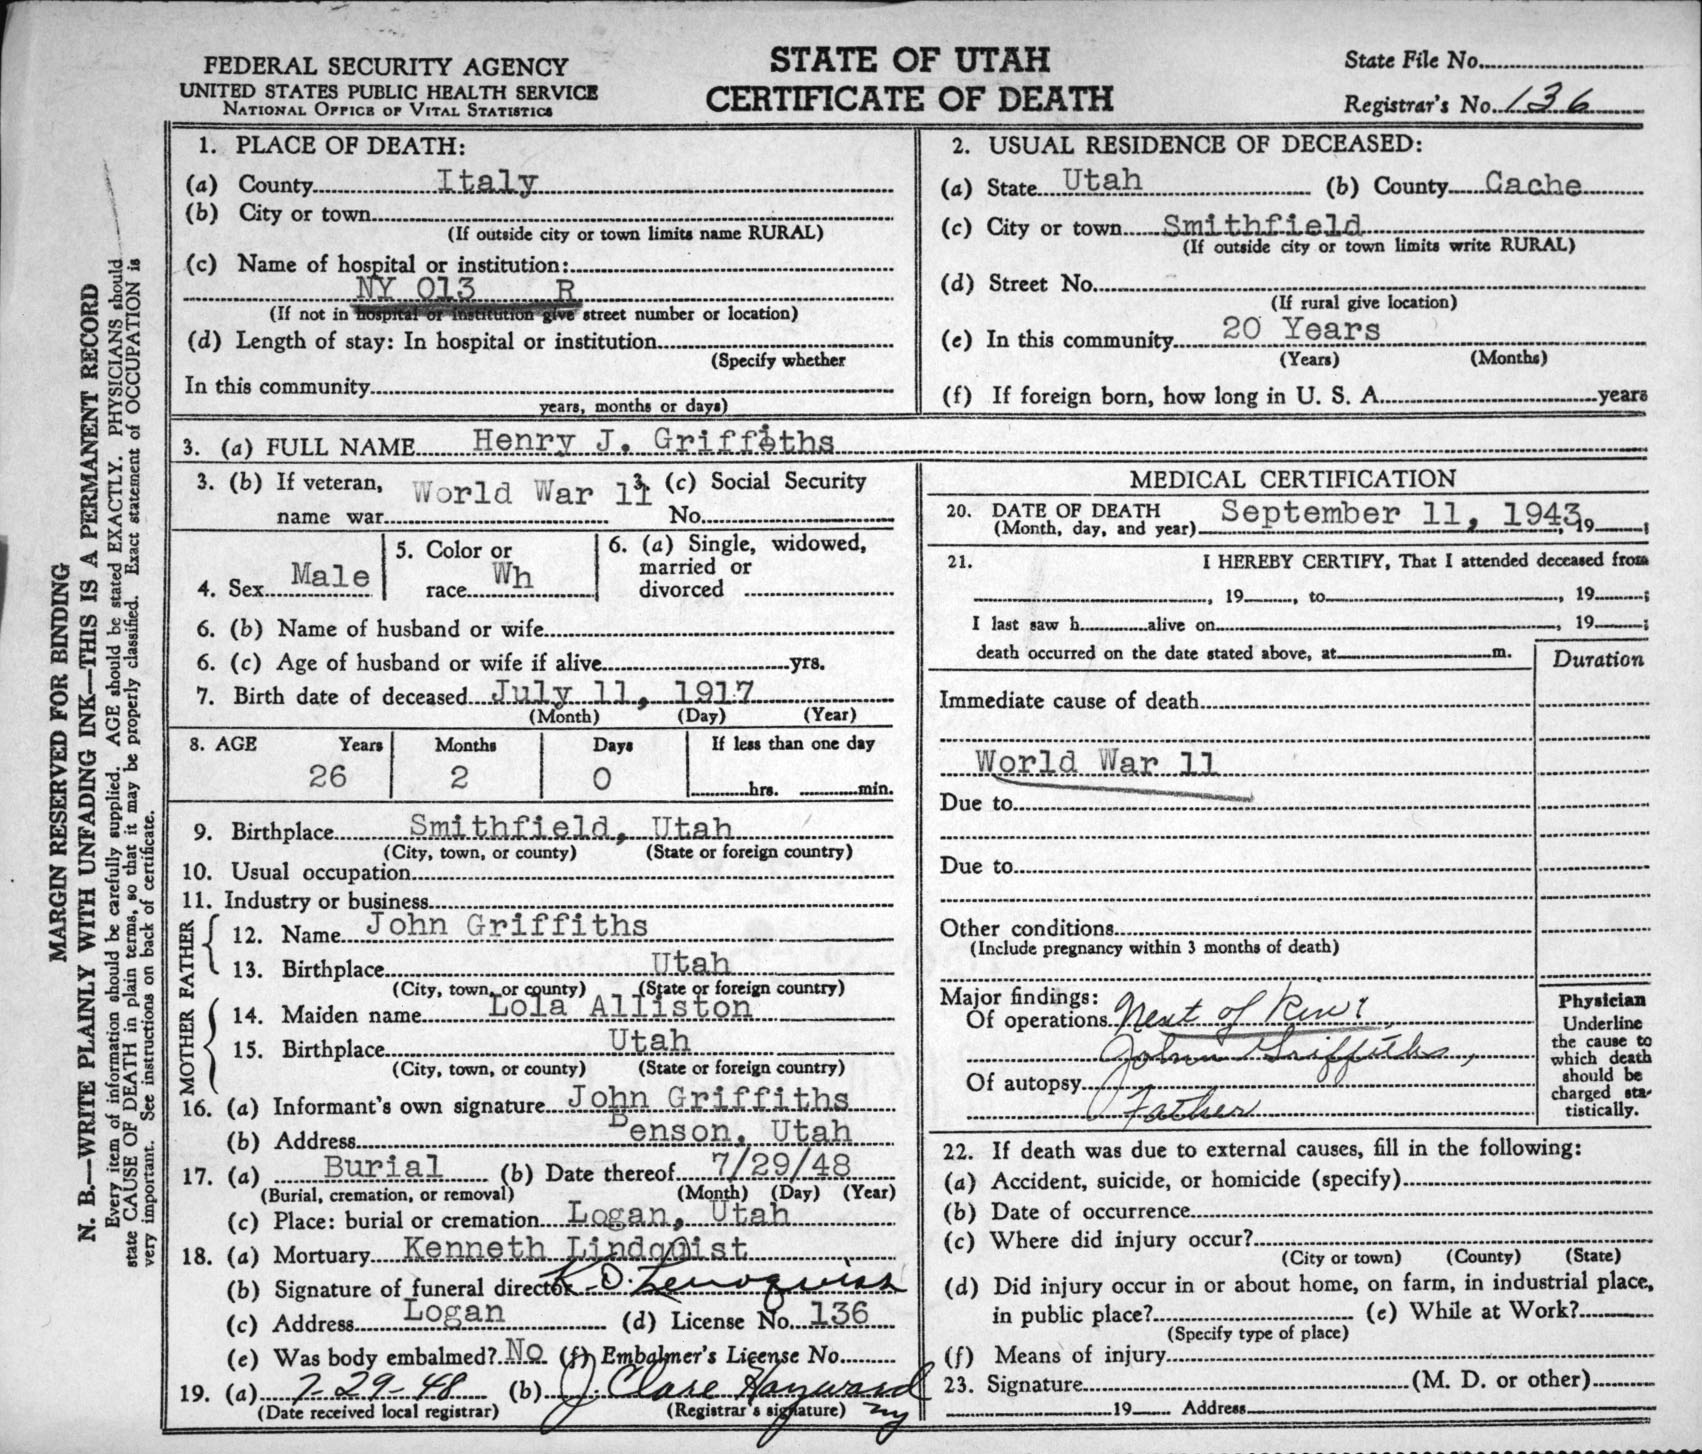 FEDERAL SECURITY AGENCY
UNITED STATES PUBLIC HEALTH SERVICE
NATIONAL OFFICE OF VITAL STATISTICS
STATE OF UTAH
CERTIFICATE OF DEATH
State File No.
Registrar's No. 136
MARGIN RESERVED FOR BINDING
N. B.—WRITE PLAINLY WITH UNFADING INK—THIS IS A PERMANENT RECORD
Every item of information should be carefully supplied. AGE should be stated EXACTLY. PHYSICIANS should
state CAUSE OF DEATH in plain terms, so that it may be properly classified. Exact statement of OCCUPATION is
very important. See instructions on back of certificate.
1. PLACE OF DEATH:
(a) County Italy
(b) City or town
(If outside city or town limits name RURAL)
(c) Name of hospital or institution:
NY 013 R
(If not in hospital or institution give street number or location)
(d) Length of stay: In hospital or institution
(Specify whether
In this community
years, months or days)
2. USUAL RESIDENCE OF DECEASED:
(a) State Utah (b) County Cache
(c) City or town Smithfield
(If outside city or town limits write RURAL)
(d) Street No.
(If rural give location)
(e) In this community 20 Years
(Years) (Months)
(f) If foreign born, how long in U. S. A. years
3. (a) FULL NAME Henry J. Griffiths
3. (b) If veteran, name war World War 11
3. (c) Social Security No.
4. Sex Male
5. Color or race Wh
6. (a) Single, widowed, married or divorced
6. (b) Name of husband or wife
6. (c) Age of husband or wife if alive yrs.
7. Birth date of deceased July 11, 1917
(Month) (Day) (Year)
8. AGE Years Months Days If less than one day
26 2 0 hrs. min.
9. Birthplace Smithfield, Utah
(City, town, or county) (State or foreign country)
10. Usual occupation
11. Industry or business
FATHER
12. Name John Griffiths
13. Birthplace Utah
(City, town, or county) (State or foreign country)
MOTHER
14. Maiden name Lola Alliston
15. Birthplace Utah
(City, town, or county) (State or foreign country)
16. (a) Informant's own signature John Griffiths
(b) Address Benson, Utah
17. (a) Burial (b) Date thereof 7/29/48
(Burial, cremation, or removal) (Month) (Day) (Year)
(c) Place: burial or cremation Logan, Utah
18. (a) Mortuary Kenneth Lindqist
(b) Signature of funeral director K. O. Lindquist
(c) Address Logan (d) License No. 136
(e) Was body embalmed? No (f) Embalmer's License No.
19. (a) 7-29-48 (b) J. Clare Hayward
(Date received local registrar) (Registrar's signature)
MEDICAL CERTIFICATION
20. DATE OF DEATH September 11, 1943, 19 ;
(Month, day, and year)
21. I HEREBY CERTIFY, That I attended deceased from
, 19 , to , 19 ;
I last saw h alive on , 19 ;
death occurred on the date stated above, at m.
Duration
Immediate cause of death
World War 11
Due to
Due to
Other conditions
(Include pregnancy within 3 months of death)
Major findings:
Of operations Next of Kin:
John Griffiths,
Of autopsy
Father
Physician
Underline
the cause to
which death
should be
charged sta-
tistically.
22. If death was due to external causes, fill in the following:
(a) Accident, suicide, or homicide (specify)
(b) Date of occurrence
(c) Where did injury occur?
(City or town) (County) (State)
(d) Did injury occur in or about home, on farm, in industrial place,
in public place? (e) While at Work?
(Specify type of place)
(f) Means of injury
23. Signature (M. D. or other)
19 Address